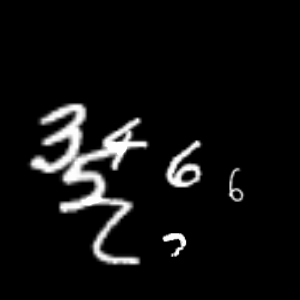 3 4 6 6
5
2 ?